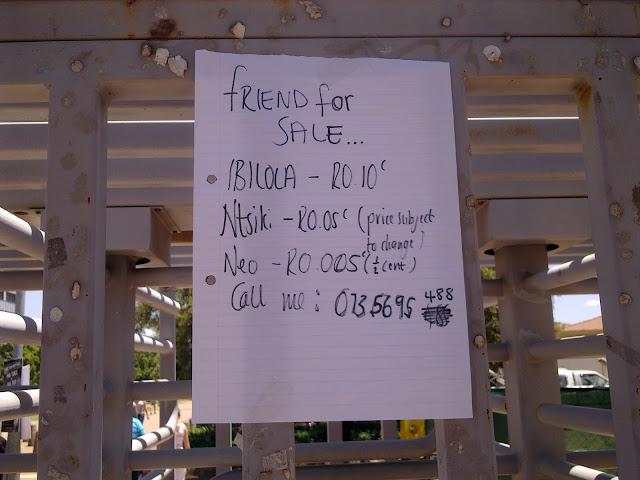 fRIEND for
SALE...
IBILOLA – R0.10c
Ntsiki – R0.05c (price subject
to change)
Neo – R0.005c (½ cent)
Call me : 073 5695 488